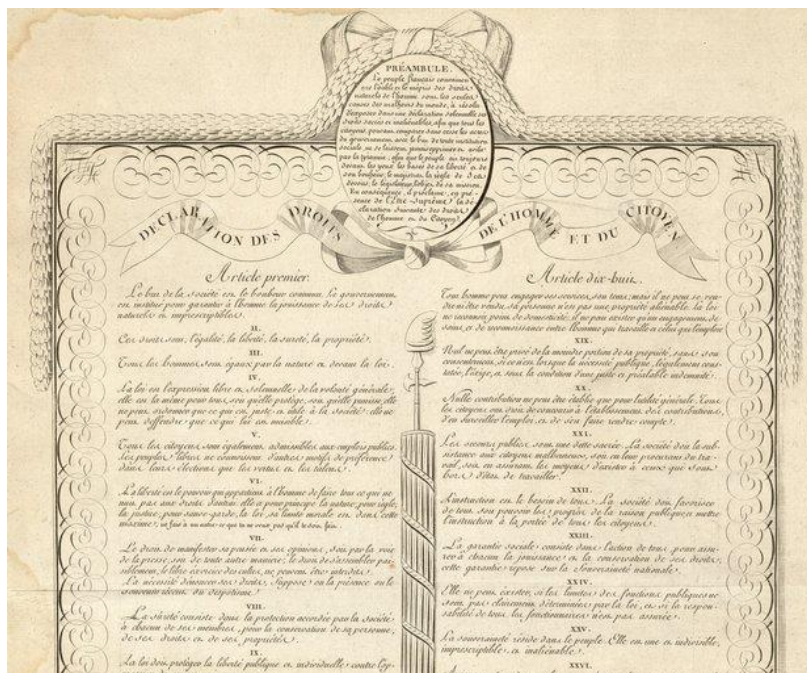 PRÉAMBULE.
Le peuple français convaincu
que l'oubli et le mépris des droits
naturels de l'homme sont les seules
causes des malheurs du monde, a résolu
d'exposer dans une déclaration solemnelle ses
droits sacrés et inaliénables, afin que tous les
citoyens, pouvant comparer sans cesse les actes
du gouvernement avec le but de toute institution
sociale, ne se laissent jamais opprimer et avilir
par la tyrannie; afin que le peuple ait toujours
devant les yeux les bases de sa liberté et de
son bonheur; le magistrat, la règle de ses
devoirs; le législateur, l'objet de sa mission.
En conséquence, il proclame, en pré-
sence de l'Etre-Suprême, la dé-
claration suivante des droits
de l'homme et du Citoyen.
DECLARATION DES DROITS DE L'HOMME ET DU CITOYEN
Article premier.
Le but de la société est le bonheur commun. Le gouvernement
est institué pour garantir à l'homme la jouissance de ses droits
naturels et imprescriptibles.
II.
Ces droits sont, l'égalité, la liberté, la sureté, la propriété.
III.
Tous les hommes sont égaux par la nature et devant la loi.
IV.
La loi est l'expression libre et solemnelle de la volonté générale;
elle est la même pour tous, soit qu'elle protège, soit qu'elle punisse; elle
ne peut ordonner que ce qui est juste et utile à la société; elle ne
peut deffendre que ce qui lui est nuisible.
V.
Tous les citoyens sont également admissibles aux emplois publics.
Les peuples libres ne connoissent d'autres motifs de préférence
dans leurs élections que les vertus et les talens.
VI.
La liberté est le pouvoir qui appartient à l'homme de faire tout ce qui ne
nuit pas aux droits d'autrui: elle a pour principe la nature; pour règle,
la justice; pour sauve-garde, la loi: sa limite morale est dans cette
maxime; ne fais à un autre ce que tu ne veux pas qu'il te soit fait.
VII.
Le droit de manifester sa pensée et ses opinions, soit par la voie
de la presse, soit de toute autre manière; le droit de s'assembler pai-
siblement, le libre exercice des cultes, ne peuvent être interdits.
La nécessité d'énoncer ses droits, suppose ou la présence ou le
souvenir récent du despotisme.
VIII.
La sûreté consiste dans la protection accordée par la Société
à chacun de ses membres, pour la conservation de sa personne,
de ses droits et de ses propriétés.
IX.
La loi doit protéger la liberté publique et individuelle contre l'op-
Article dix-huit.
Tout homme peut engager ses services, son tems; mais il ne peut se ven-
dre ni être vendu, sa personne n'est pas une propriété aliénable. La loi
ne reconnoit point de domesticité; il ne peut exister qu'un engagement de
soins, et de reconnoissance entre l'homme qui travaille et celui qui l'emploie
XIX.
Nul ne peut être privé de la moindre portion de sa propriété, sans son
consentement, si ce n'est lorsque la nécessité publique, légalement cons-
tatée, l'exige, et sous la condition d'une juste et préalable indemnité.
XX.
Nulle contribution ne peut être établie que pour l'utilité générale. Tous
les citoyens ont droit de concourir à l'établissement des contributions,
d'en surveiller l'emploi, et de s'en faire rendre compte.
XXI.
Les secours publics sont une dette sacrée. La société doit la sub-
sistance aux citoyens malheureux, soit en leur procurant du tra-
vail, soit en assurant les moyens d'exister à ceux qui sont
hors d'état de travailler.
XXII.
L'instruction est le besoin de tous. La société doit favoriser
de tout son pouvoir les progrès de la raison publique, et mettre
l'instruction à la portée de tous les citoyens.
XXIII.
La garantie sociale consiste dans l'action de tous, pour assu-
rer à chacun la jouissance et la conservation de ses droits;
cette garantie repose sur la Souveraineté nationale.
XXIV.
Elle ne peut exister, si les limites des fonctions publiques ne
sont pas clairement déterminées par la loi, et si la respon-
sabilité de tous les fonctionnaires n'est pas assurée.
XXV.
La souveraineté réside dans le peuple. Elle est une et indivisible,
imprescriptible et inaliénable.
XXVI.